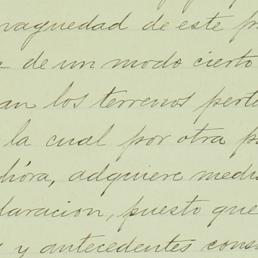 vaguedad de este p
de un modo cierto
an los terrenos perte
la cual por otra p
hóra, adquiere medi
laracion, puesto que
y antecedentes cons